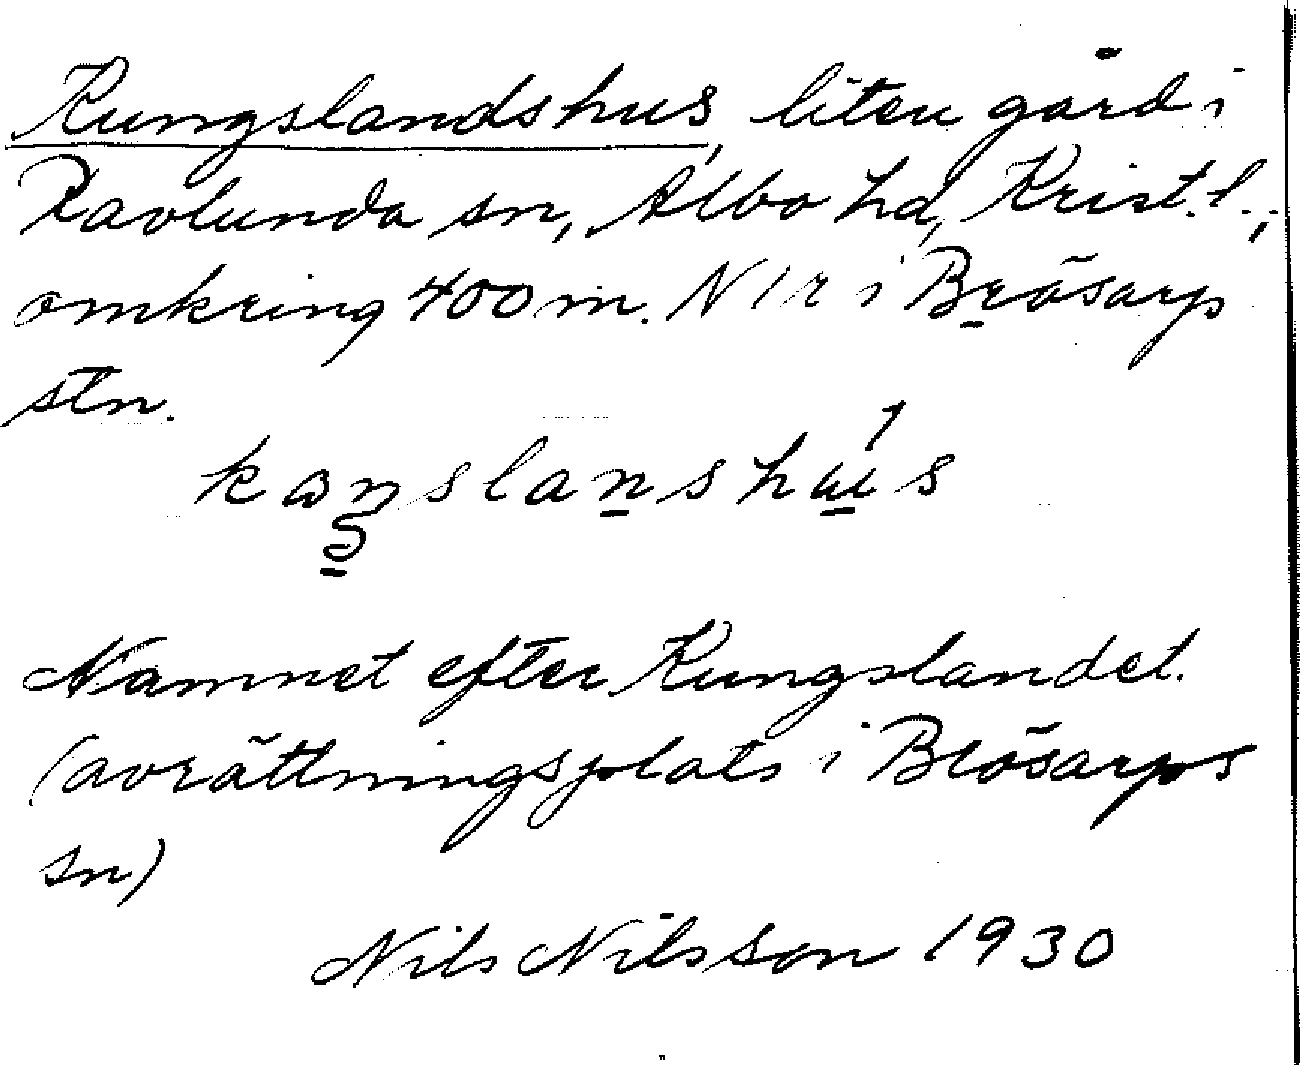 Kungslandshus, liten gård i
Ravlunda sn, Albo hd, Krist. l.,
omkring 400 m. N i Brösarp
stn.
Namnet efter Kungslandet.
(avrättningsplats i Brösarps
sn)
Nils Nilsson 1930